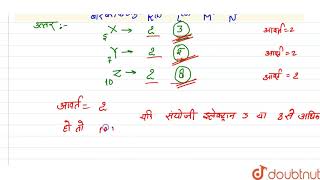 K L M N
उत्तर :-
₅X → 2 3 आवर्त = 2
₇Y → 2 5 आवर्त = 2
₁₀Z → 2 8 आवर्त = 2
आवर्त = 2
यदि संयोजी इलेक्ट्रान 3 या 3 से अधिक
हो तो
doubtnut